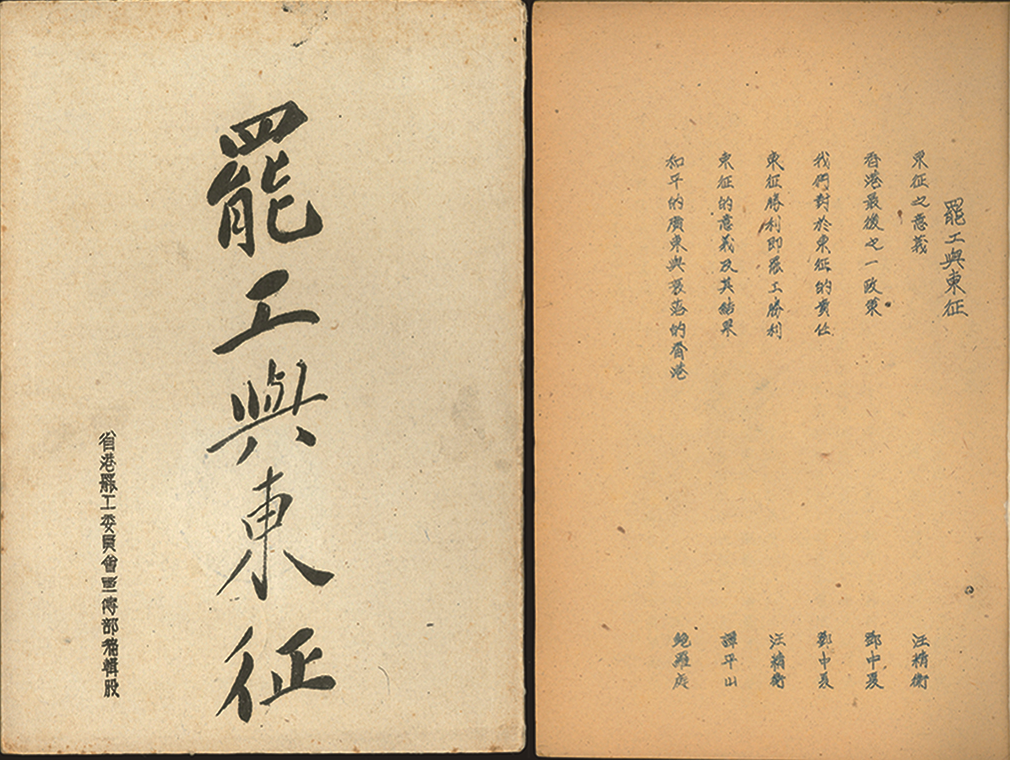 罷工與東征
省港罷工委員會宣傳部编輯股
罷工與東征
東征之意義 汪精衛
香港最後之一政策 鄧中夏
我們對於東征的責任 鄧中夏
東征勝利即罷工勝利 汪精衛
東征的意義及其結果 譚平山
和平的廣東與衰落的香港 鮑羅庭